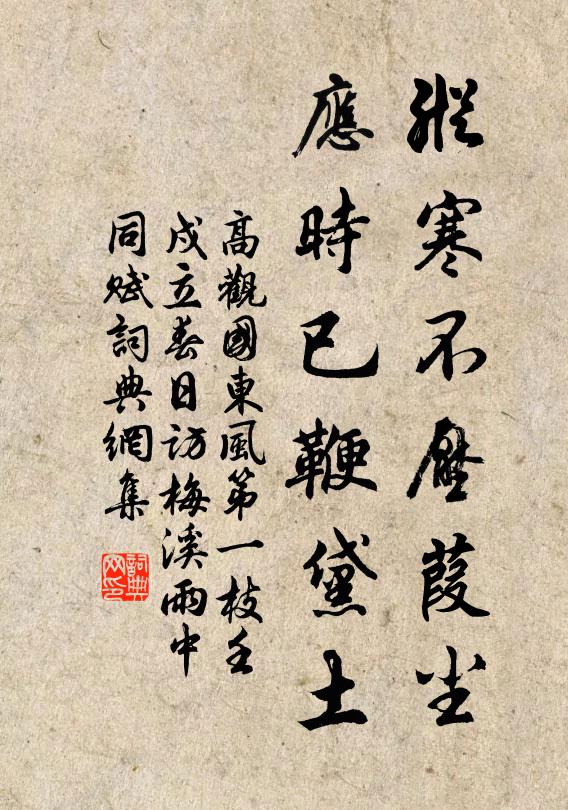 縱寒不壓葭塵
應時已鞭黛土
高觀國東風第一枝壬
戍立春日訪梅溪雨中
同賦詞典網集
詞典
网印